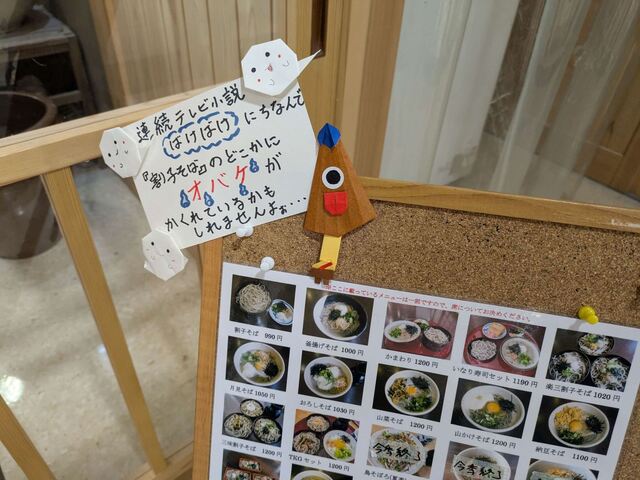 連続テレビ小説
ばけばけ にちなんで
『割子そば』のどこかに
オバケが
かくれているかも
しれませんよぉ…
※ここに載っているメニューは一部ですので、席についてお決めください。
割子そば 990円
釜揚げそば 1000円
かまわり 1200円
いなり寿司セット 1190円
楽三割子そば 1020円
月見そば 1050円
おろしそば 1030円
山菜そば 1200円
山かけそば 1200円
納豆そば 1100円
三味割子そば 1200円
TKGセット 1200円
今季終了
今季終了